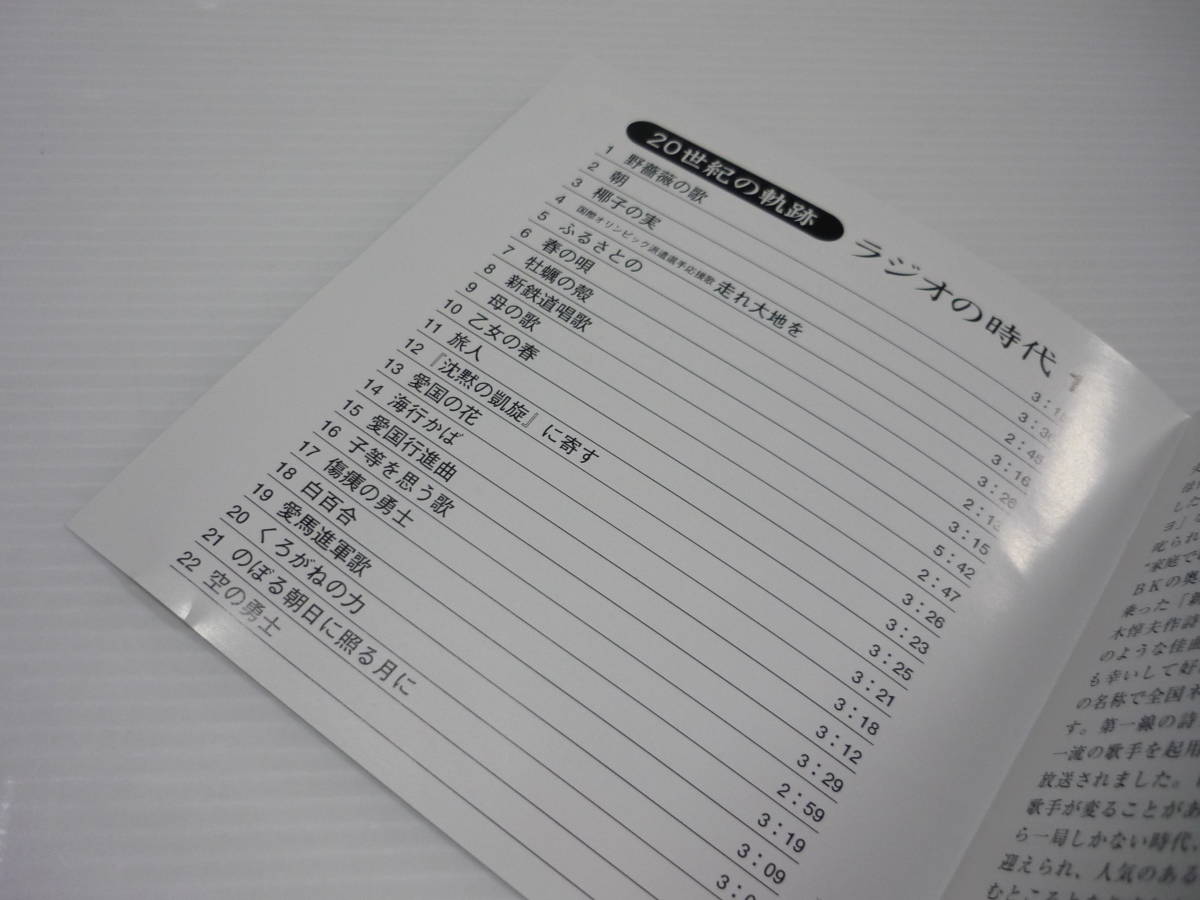 20世紀の軌跡 ラジオの時代 1
1 野薔薇の歌
2 朝
3 椰子の実 2:45
4 国際オリンピック派遣選手応援歌 走れ大地を 3:16
5 ふるさとの 3:26
6 春の唄 2:13
7 牡蠣の殻 3:15
8 新鉄道唱歌 5:42
9 母の歌 2:47
10 乙女の春 3:26
11 旅人 3:23
12 『沈黙の凱旋』に寄す 3:25
13 愛国の花 3:21
14 海行かば 3:18
15 愛国行進曲 3:12
16 子等を思う歌 3:29
17 傷痍の勇士 2:59
18 白百合 3:19
19 愛馬進軍歌 3:09
20 くろがねの力
21 のぼる朝日に照る月に
22 空の勇士
した
ヨ』
叱られ
"家庭で
BKの奥
乗った「新
木惇夫作詩
のような佳曲
も幸いして好
の名称で全国ネ
す。第一線の詩
一流の歌手を起用
放送されました。
歌手が変ることがあ
ら一局しかない時代、
迎えられ、人気のある